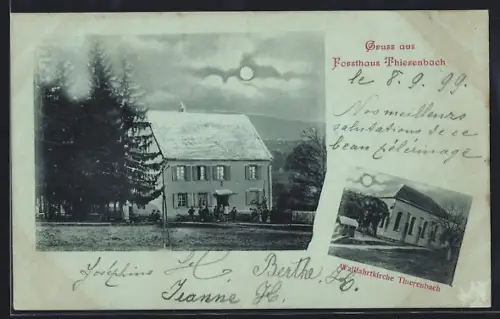 Gruss aus
Forsthaus Thierenbach
le 8.9.99.
Nos meilleurs
salutations de ce
beau pélérinage
Wallfahrtkirche Thierenbach
Joséphine H. Berthe H.
Jeanne H.